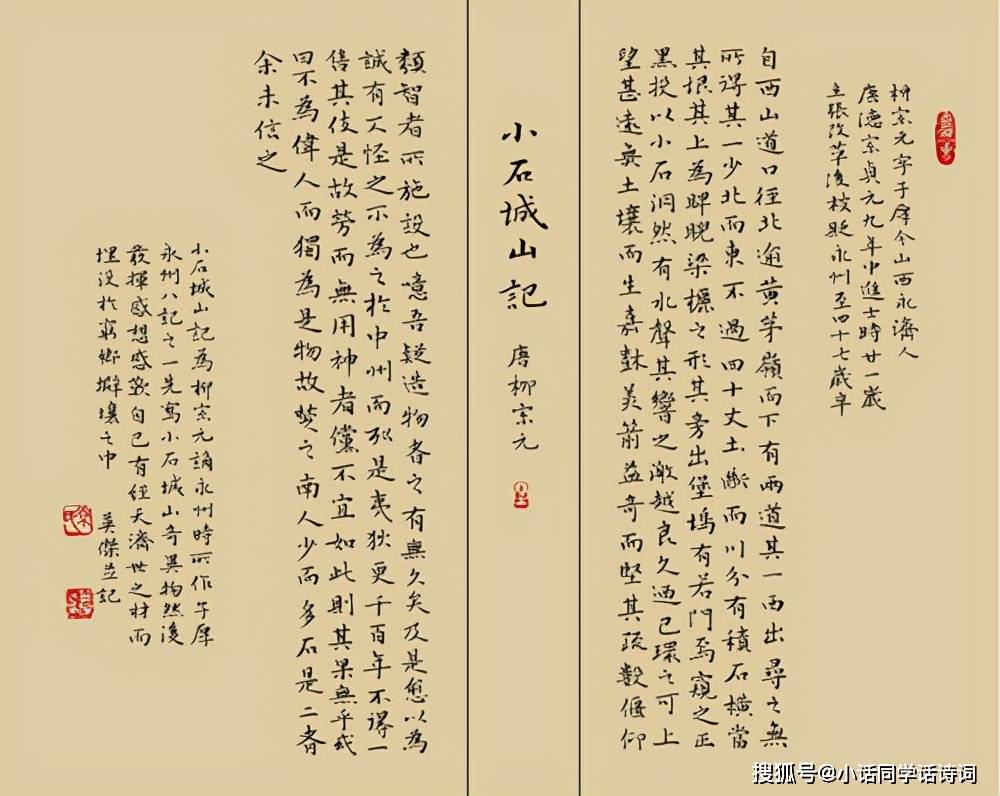 柳宗元字子厚今山西永濟人
唐德宗貞元九年中進士時廿一歲
主張改革後被貶永州至四十七歲卒
自西山道口徑北逾黃茅嶺而下有兩道其一西出尋之無
所得其一少北而東不過四十丈土斷而川分有積石橫當
其垠其上為睥睨梁欐之形其旁出堡塢有若門焉窺之正
黑投以小石洞然有水聲其響之激越良久迺已環之可上
望甚遠無土壤而生嘉樹美箭益奇而堅其疏數偃仰
小石城山記
唐柳宗元
類智者所施設也噫吾疑造物者之有無久矣及是愈以為
誠有又怪之不為之於中州而列是夷狄更千百年不得一
倍其伎是故勞而無用神者儻不宜如此則其果無乎或
曰不為偉人而獨為是物故焚之南人少而多石是二者
余未信之
小石城山記為柳宗元謫永州時所作子厚
永州八記之一先寫小石城山奇異物然後
發揮感想感歎自己有經天濟世之材而
埋沒於窮鄉僻壤之中
英傑並記
搜狐号@小话同学话诗词